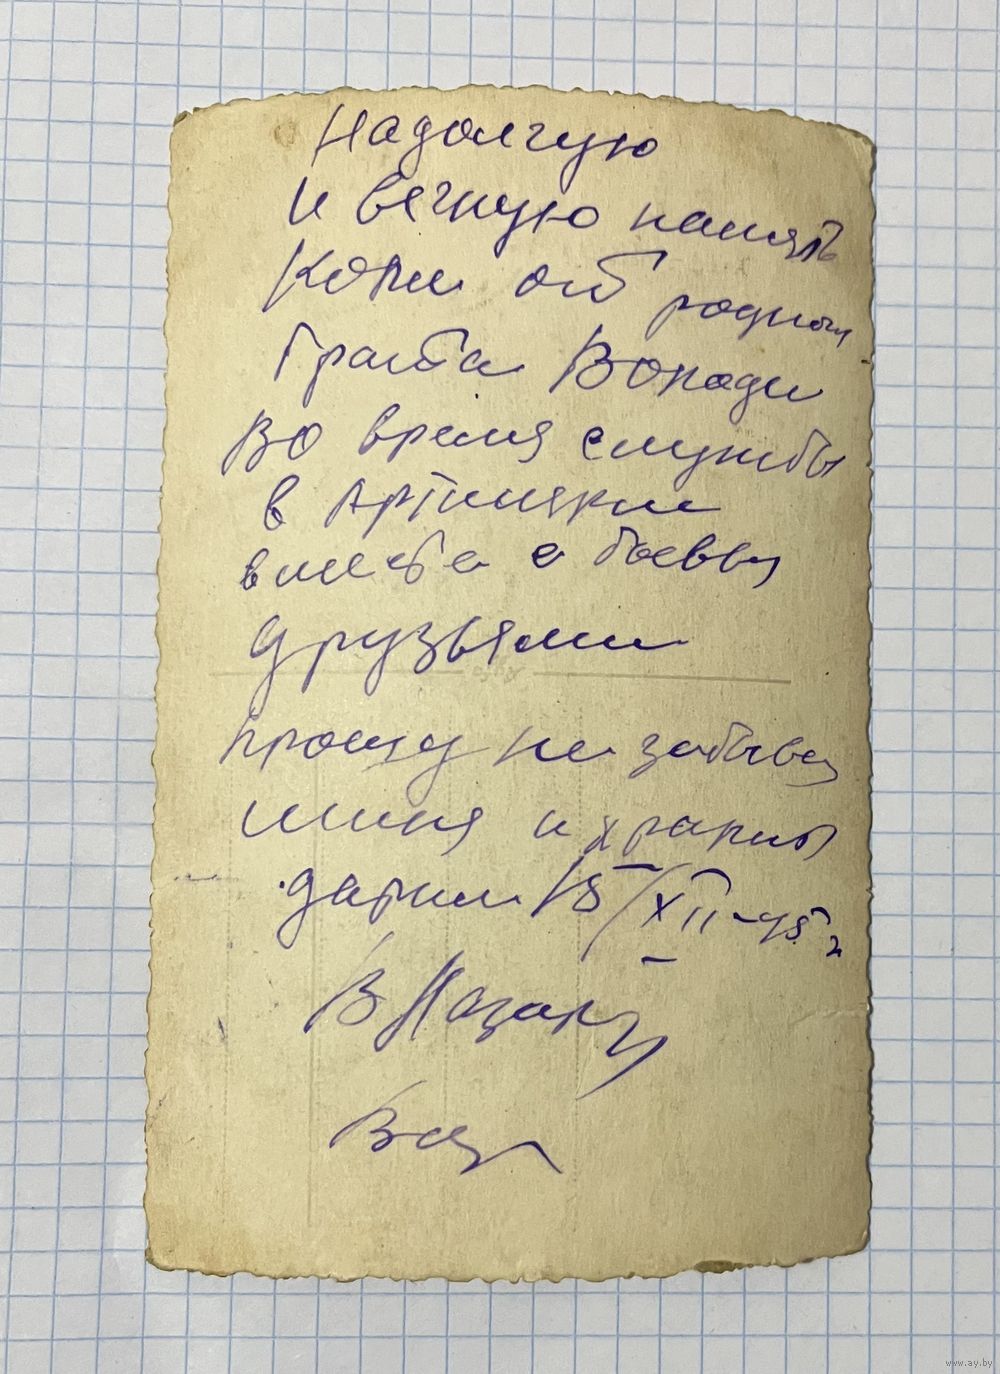 На долгую
и вечную память
Коли от родного
брата Володи
Во время службы
в Артилярии
вместе с боевым
друзьями
прошу не забывай
миня и храни
дарил 15/XII-45 г
В
www.ay.by